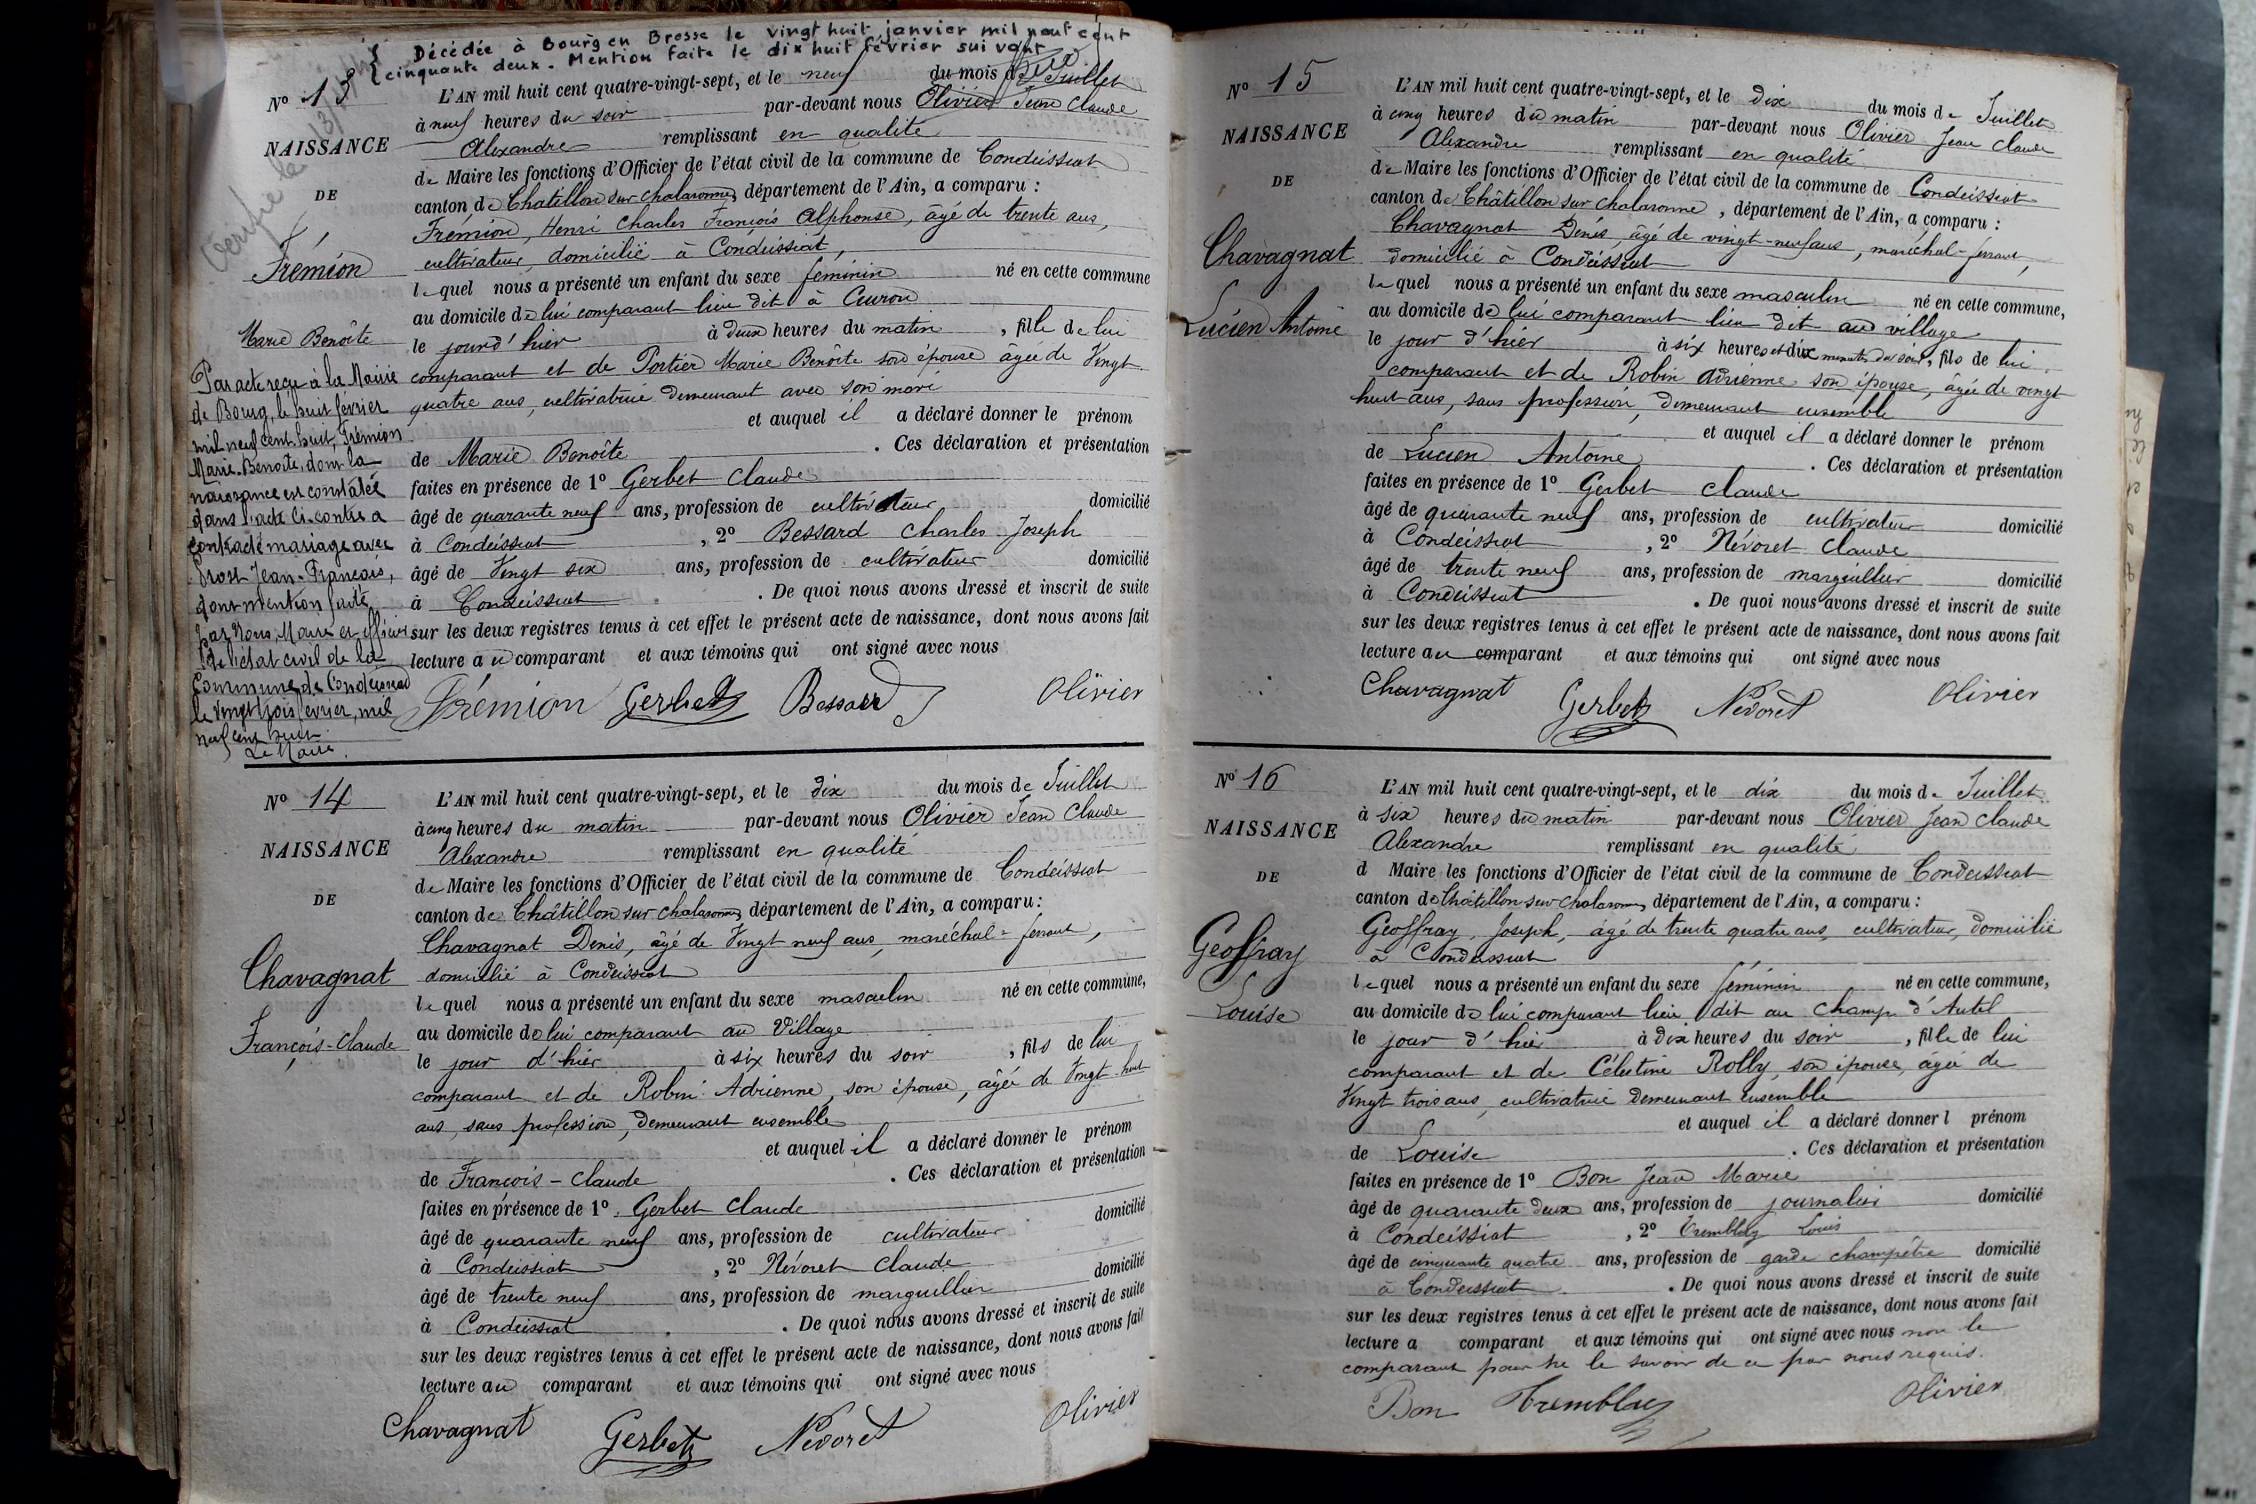 Décédée à Bourg en Bresse le vingt huit janvier mil neuf cent
cinquante deux. Mention faite le dix huit février suivant
Nº 13
NAISSANCE
DE
Frémion
Marie Benoîte
Par acte reçu à la Mairie
de Bourg, le huit février
mil neuf cent huit, Frémion
Marie-Benoîte, dont la
naissance est constatée
dans l'acte ci-contre a
contracté mariage avec
Prost Jean-François,
dont mention faite
par Nous, Maire et officier
de l'état civil de la
Commune de Condeissiat
le vingt trois février, mil
neuf cent huit
Le Maire.
L'AN mil huit cent quatre-vingt-sept, et le neuf du mois de Juillet
à neuf heures du soir par-devant nous Olivier Jean Claude
Alexandre remplissant en qualité
de Maire les fonctions d'Officier de l'état civil de la commune de Condeissiat
canton de Chatillon sur chalaronne, département de l'Ain, a comparu :
Frémion, Henri Charles François Alphonse, âgé de trente ans,
cultivateur, domicilié à Condeissiat,
lequel nous a présenté un enfant du sexe féminin né en cette commune
au domicile de lui comparant lieu dit à Curon
le jourd'hier à deux heures du matin, fille de lui
comparant et de Portier Marie Benoîte son épouse âgée de Vingt
quatre ans, cultivatrice demeurant avec son mari
et auquel il a déclaré donner le prénom
de Marie Benoîte. Ces déclaration et présentation
faites en présence de 1º Gerbet Claude
âgé de quarante neuf ans, profession de cultivateur domicilié
à Condeissiat, 2º Bessard Charles Joseph
âgé de Vingt six ans, profession de cultivateur domicilié
à Condeissiat. De quoi nous avons dressé et inscrit de suite
sur les deux registres tenus à cet effet le présent acte de naissance, dont nous avons fait
lecture au comparant et aux témoins qui ont signé avec nous
Frémion Gerbet Bessard Olivier
Nº 14
NAISSANCE
DE
Chavagnat
François-Claude
L'AN mil huit cent quatre-vingt-sept, et le dix du mois de Juillet
à cinq heures du matin par-devant nous Olivier Jean Claude
Alexandre remplissant en qualité
de Maire les fonctions d'Officier de l'état civil de la commune de Condeissiat
canton de Châtillon sur chalaronne, département de l'Ain, a comparu :
Chavagnat Denis, âgé de Vingt neuf ans, maréchal-ferrant,
domicilié à Condeissiat
lequel nous a présenté un enfant du sexe masculin né en cette commune,
au domicile de lui comparant au Village
le jour d'hier à six heures du soir, fils de lui
comparant et de Robin Adrienne, son épouse, âgée de Vingt-huit
ans, sans profession, demeurant ensemble
et auquel il a déclaré donner le prénom
de François-Claude. Ces déclaration et présentation
faites en présence de 1º Gerbet Claude
âgé de quarante neuf ans, profession de cultivateur domicilié
à Condeissiat, 2º Névoret Claude
âgé de trente neuf ans, profession de marguillier domicilié
à Condeissiat. De quoi nous avons dressé et inscrit de suite
sur les deux registres tenus à cet effet le présent acte de naissance, dont nous avons fait
lecture au comparant et aux témoins qui ont signé avec nous
Chavagnat Gerbet Névoret Olivier
Nº 15
NAISSANCE
DE
Chavagnat
Lucien Antoine
L'AN mil huit cent quatre-vingt-sept, et le dix du mois de Juillet
à cinq heures du matin par-devant nous Olivier Jean Claude
Alexandre remplissant en qualité
de Maire les fonctions d'Officier de l'état civil de la commune de Condeissiat
canton de Châtillon sur chalaronne, département de l'Ain, a comparu :
Chavagnat Denis, âgé de vingt-neuf ans, maréchal-ferrant,
domicilié à Condeissiat
lequel nous a présenté un enfant du sexe masculin né en cette commune,
au domicile de lui comparant lieu dit au village
le jour d'hier à six heures et dix minutes du soir, fils de lui
comparant et de Robin Adrienne son épouse, âgée de vingt
huit ans, sans profession, demeurant ensemble
et auquel il a déclaré donner le prénom
de Lucien Antoine. Ces déclaration et présentation
faites en présence de 1º Gerbet Claude
âgé de quarante neuf ans, profession de cultivateur domicilié
à Condeissiat, 2º Névoret Claude
âgé de trente neuf ans, profession de marguillier domicilié
à Condeissiat. De quoi nous avons dressé et inscrit de suite
sur les deux registres tenus à cet effet le présent acte de naissance, dont nous avons fait
lecture au comparant et aux témoins qui ont signé avec nous
Chavagnat Gerbet Névoret Olivier
Nº 16
NAISSANCE
DE
Geoffray
Louise
L'AN mil huit cent quatre-vingt-sept, et le dix du mois de Juillet
à six heures du matin par-devant nous Olivier Jean Claude
Alexandre remplissant en qualité
d Maire les fonctions d'Officier de l'état civil de la commune de Condeissiat
canton de Châtillon sur chalaronne, département de l'Ain, a comparu :
Geoffray, Joseph, âgé de trente quatre ans, cultivateur, domicilié
à Condeissiat
lequel nous a présenté un enfant du sexe féminin né en cette commune,
au domicile de lui comparant lieu dit au Champ d'Autel
le jour d'hier à dix heures du soir, fille de lui
comparant et de Célestine Rolly, son épouse, âgée de
Vingt trois ans, cultivatrice demeurant ensemble
et auquel il a déclaré donner l prénom
de Louise. Ces déclaration et présentation
faites en présence de 1º Bon Jean Marie
âgé de quarante deux ans, profession de journalier domicilié
à Condeissiat, 2º Tremblay Louis
âgé de cinquante quatre ans, profession de garde champêtre domicilié
à Condeissiat. De quoi nous avons dressé et inscrit de suite
sur les deux registres tenus à cet effet le présent acte de naissance, dont nous avons fait
lecture a comparant et aux témoins qui ont signé avec nous non le
comparant pour ne le savoir de ce par nous requis.
Bon Tremblay Olivier